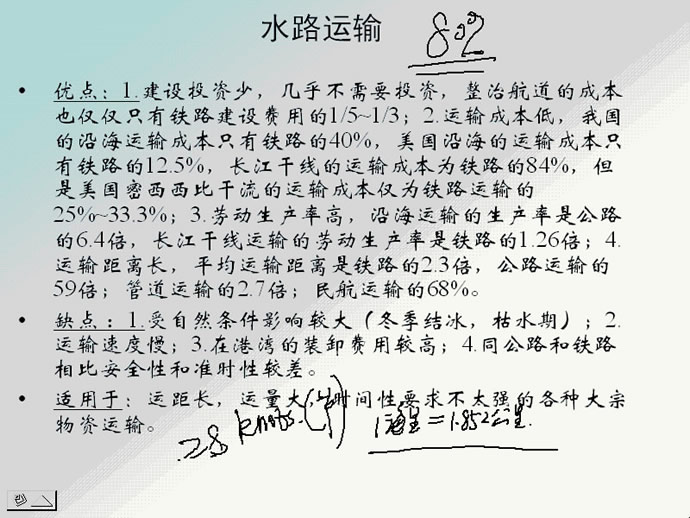 水路运输
802
• 优点：1.建设投资少，几乎不需要投资，整治航道的成本
也仅仅只有铁路建设费用的1/5~1/3；2.运输成本低，我国
的沿海运输成本只有铁路的40%，美国沿海的运输成本只
有铁路的12.5%，长江干线的运输成本为铁路的84%，但
是美国密西西比干流的运输成本仅为铁路运输的
25%~33.3%；3.劳动生产率高，沿海运输的生产率是公路
的6.4倍，长江干线运输的劳动生产率是铁路的1.26倍；4.
运输距离长，平均运输距离是铁路的2.3倍，公路运输的
59倍；管道运输的2.7倍；民航运输的68%。
• 缺点：1.受自然条件影响较大（冬季结冰，枯水期）；2.
运输速度慢；3.在港湾的装卸费用较高；4.同公路和铁路
相比安全性和准时性较差。
• 适用于：运距长，运量大，时间性要求不太强的各种大宗
物资运输。
28 knots. (节) 1海里=1.852公里.